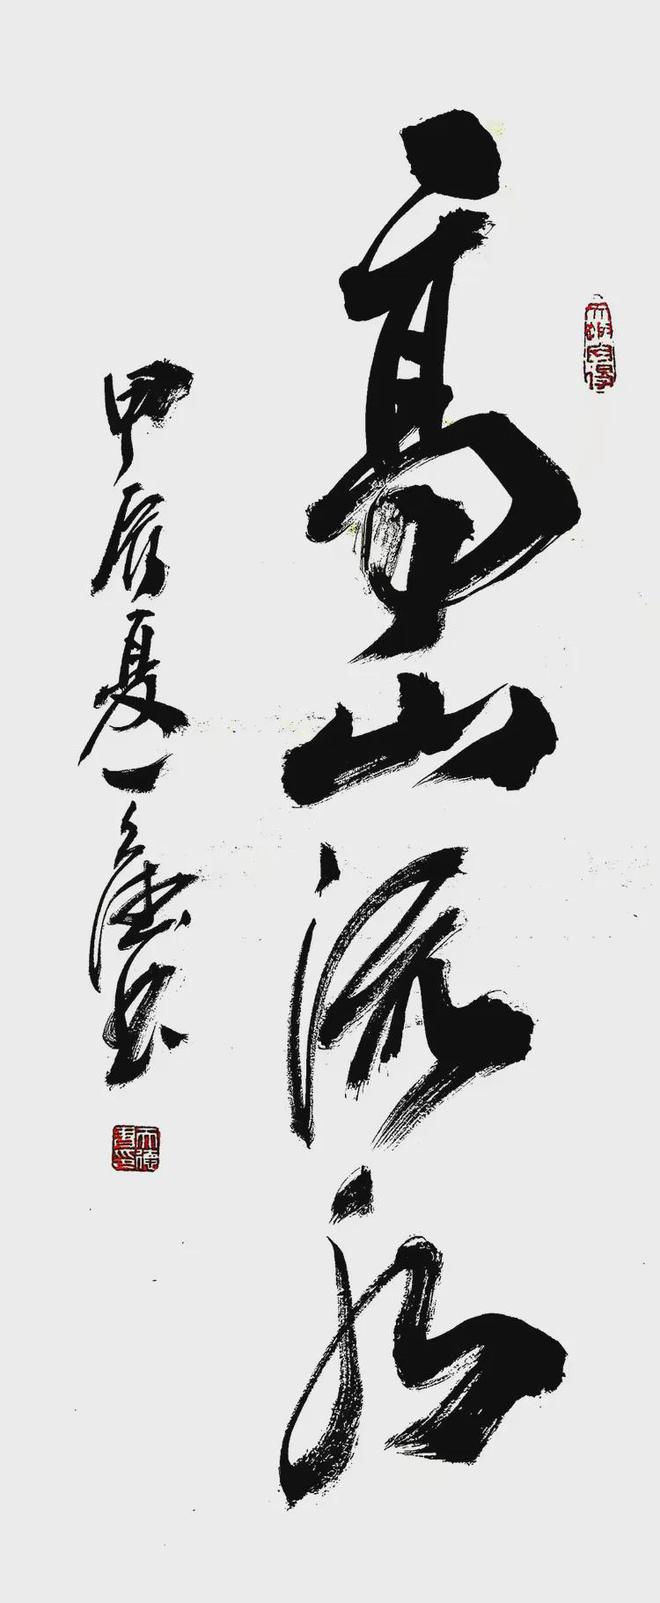 高山流水
甲辰夏一德书